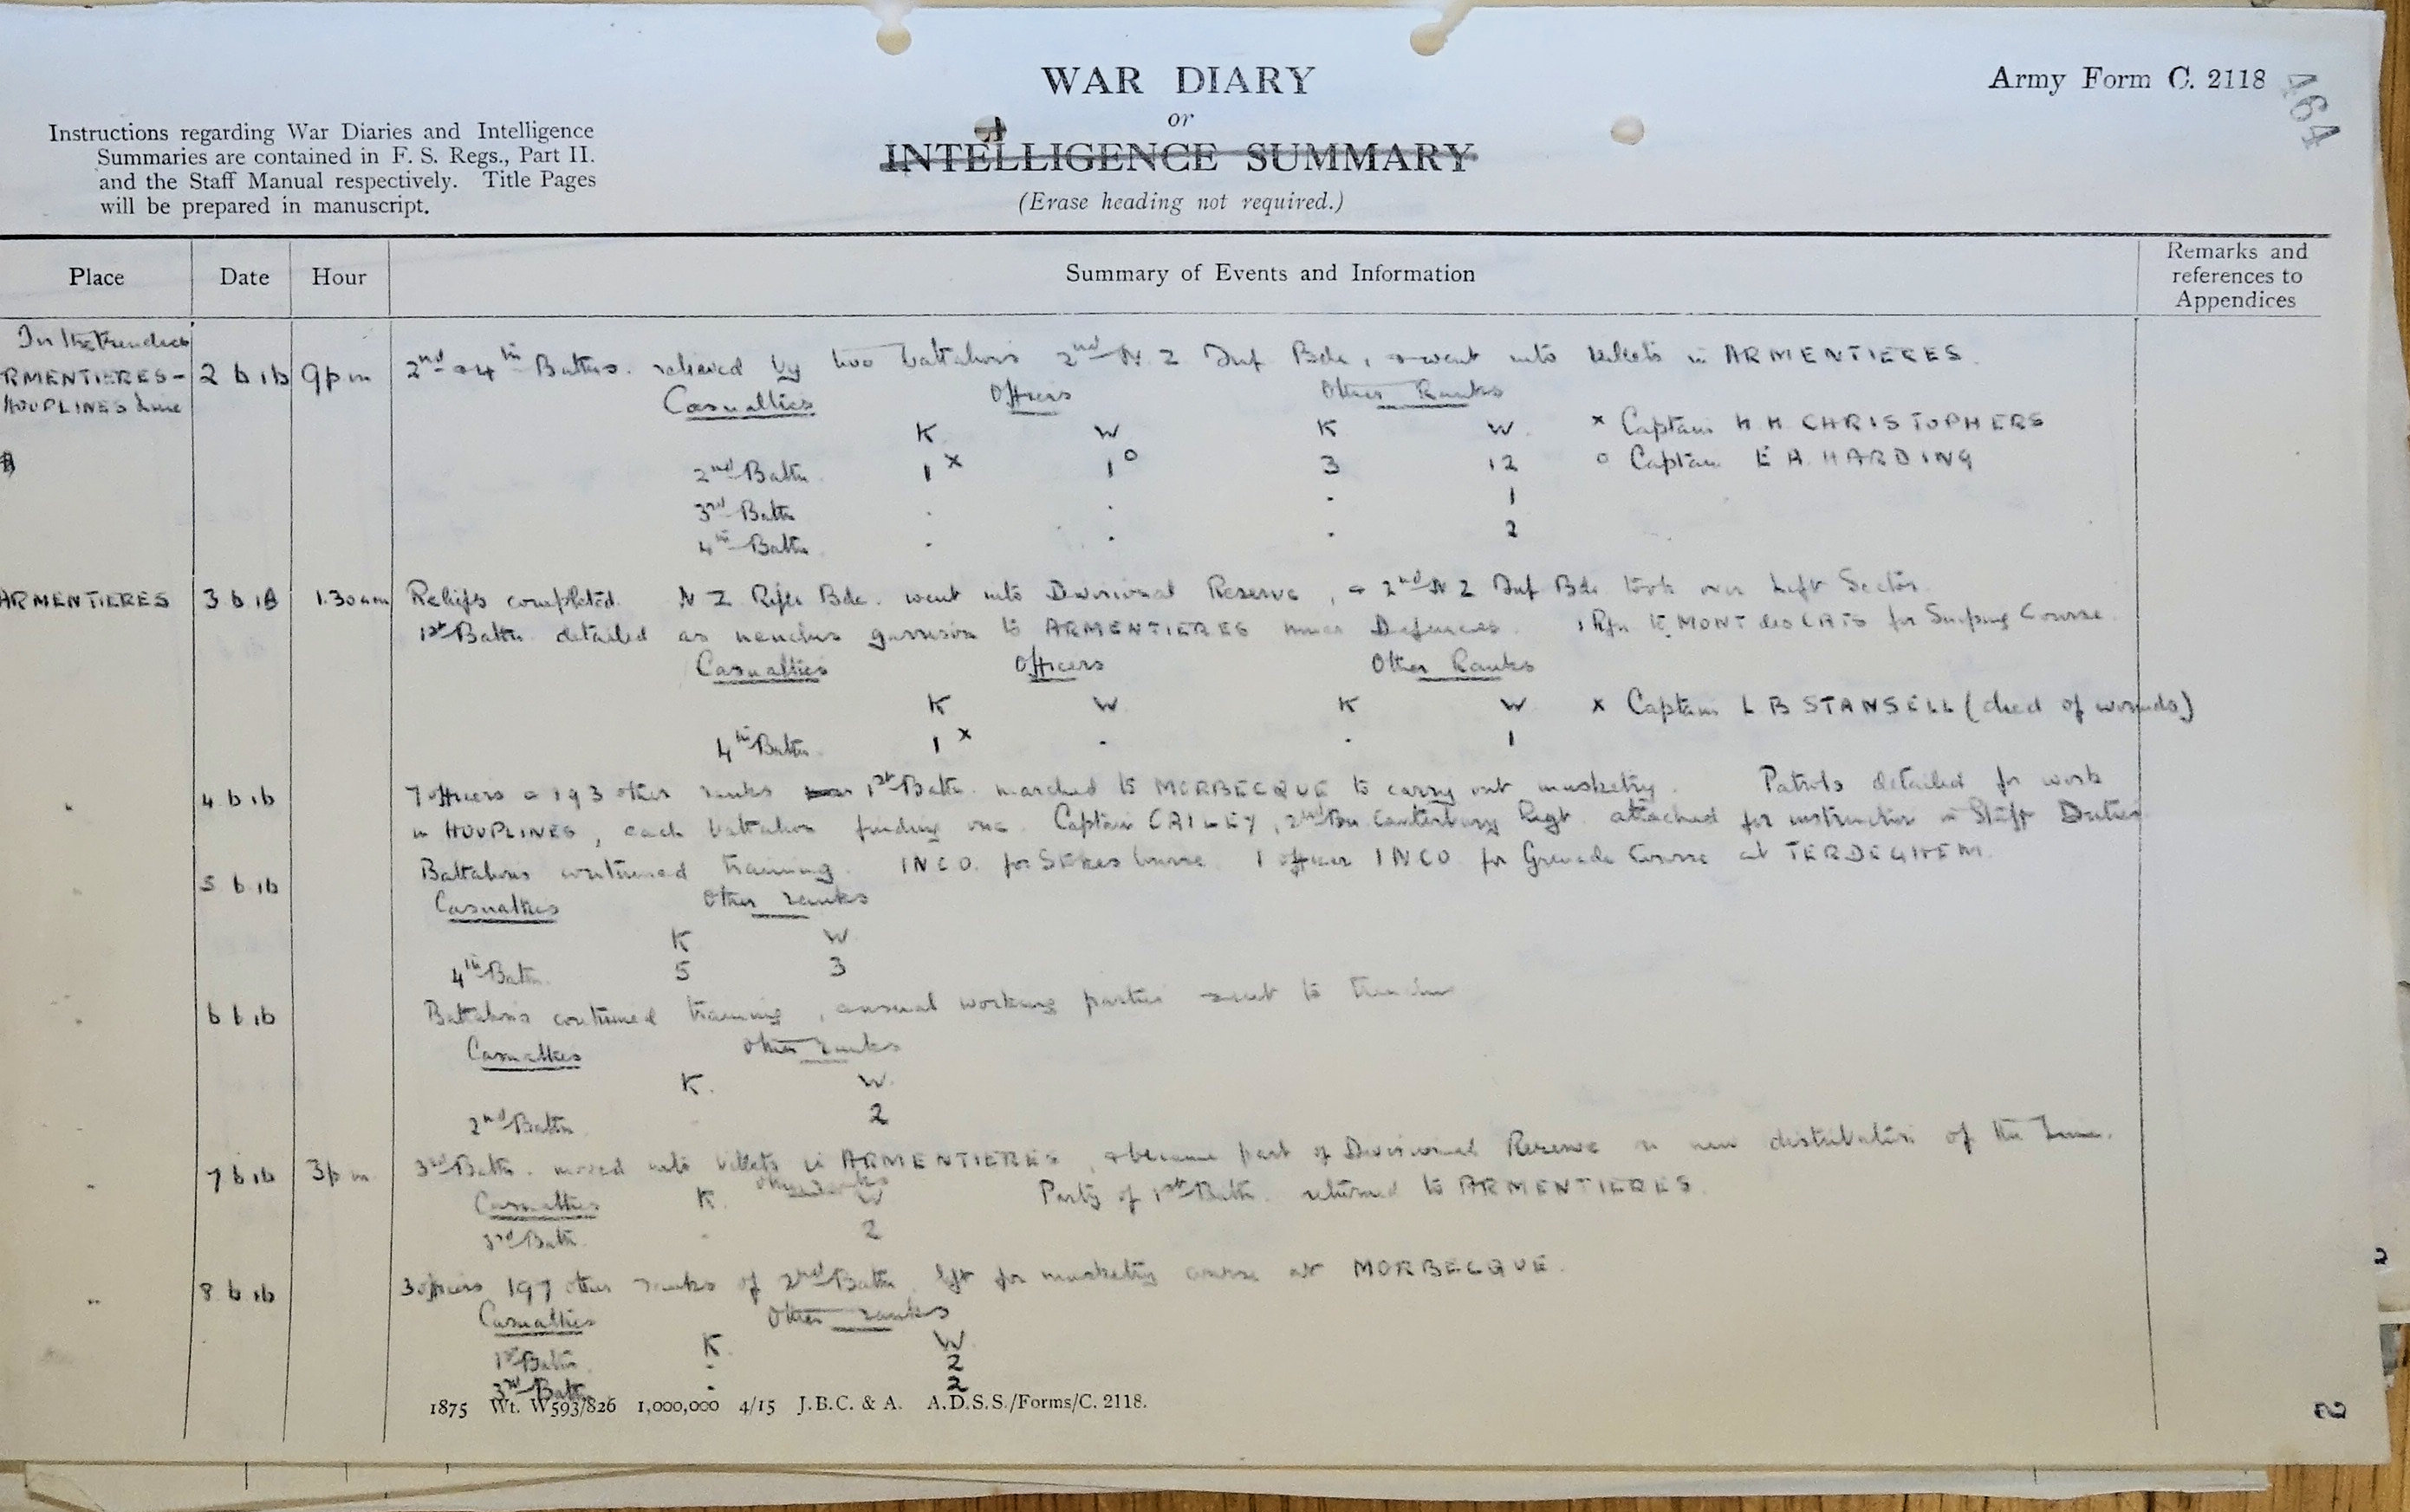 WAR DIARY
or
INTELLIGENCE SUMMARY
(Erase heading not required.)
Army Form C. 2118
464
Instructions regarding War Diaries and Intelligence
Summaries are contained in F. S. Regs., Part II.
and the Staff Manual respectively. Title Pages
will be prepared in manuscript.
Place Date Hour Summary of Events and Information Remarks and references to Appendices
In the trenches
RMENTIERES - 2 6 16 9 pm 2nd & 4th Battns. relieved by two battalions 2nd N.Z Inf Bde, & went into billets in ARMENTIERES.
HOUPLINES line
Casualties Officers Other Ranks
K W K W x Captain H H CHRISTOPHERS
2nd Battn 1 x 1 o 3 12 o Captain E A HARDING
3rd Battn . . . 1
4th Battn . . . 2
ARMENTIERES 3 6 16 1.30 am Reliefs completed. N Z Rifle Bde. went into Divisional Reserve, & 2nd N Z Inf Bde took over Left Sector.
1st Battn detailed as garrison to ARMENTIERES Defences. 1 Rfn to MONT des CATS for Sniping Course.
Casualties Officers Other Ranks
K W K W x Captain L B STANSELL (died of wounds)
4th Battn 1 x . . 1
" 4 6 16 7 officers & 193 other ranks 1st Battn. marched to MORBECQUE to carry out musketry. Patrols detailed for work
in HOUPLINES, each battalion finding one. Captain CAILEY, 2nd Bn Canterbury Regt. attached for instruction in Staff Duties
" 5 6 16 Battalions continued training. 1 NCO. for Stokes Course. 1 officer 1 NCO for Grenade Course at TERDEGHEM.
Casualties Other ranks
K W
4th Battn. 5 3
" 6 6 16 Battalions continued training, & usual working parties sent to trenches
Casualties Other ranks
K. W.
2nd Battn . 2
" 7 6 16 3 pm 3rd Battn. moved into billets in ARMENTIERES, & became part of Divisional Reserve in new distribution of the Line.
Casualties K. Other ranks W Party of 1st Battn. returned to ARMENTIERES.
3rd Battn. . 2
" 8 6 16 3 officers 197 other ranks of 2nd Battn. left for musketry course at MORBECQUE.
Casualties Other ranks
K. W
1st Battn . 2
3rd Battn . 2
1875 Wt. W593/826 1,000,000 4/15 J.B.C. & A. A.D.S.S./Forms/C. 2118.
2